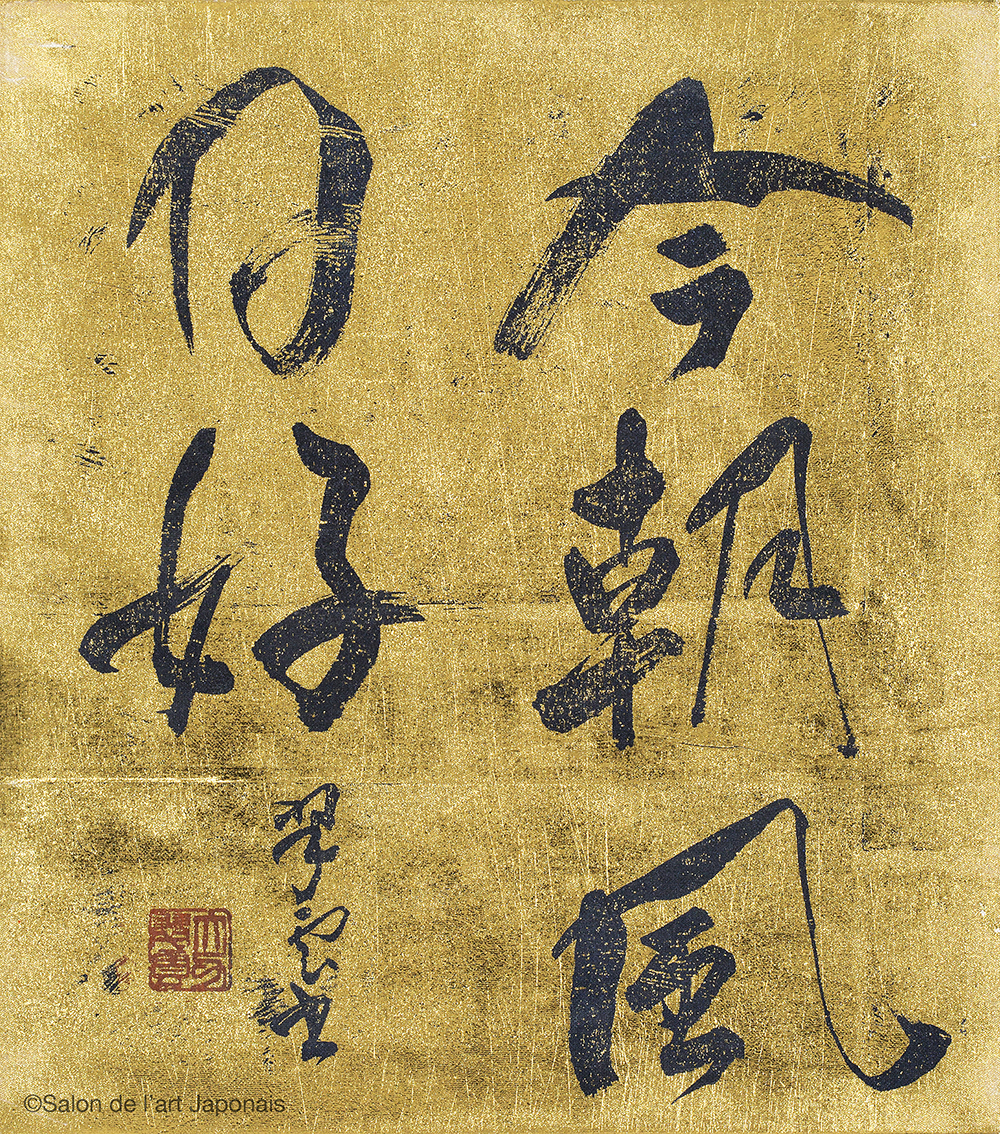 今朝風
日好
翠雲書
©Salon de l'art Japonais